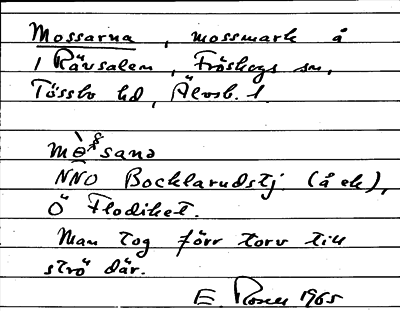 Mossarna, mossmark å
1 Rävsalen, Fröskogs sn,
Tössbo hd, Älvsb. l.
NNO Bocklarudstj (å ek),
Ö Flodiket.
Man tog förr torv till
strö där.
E. Rosell 1965